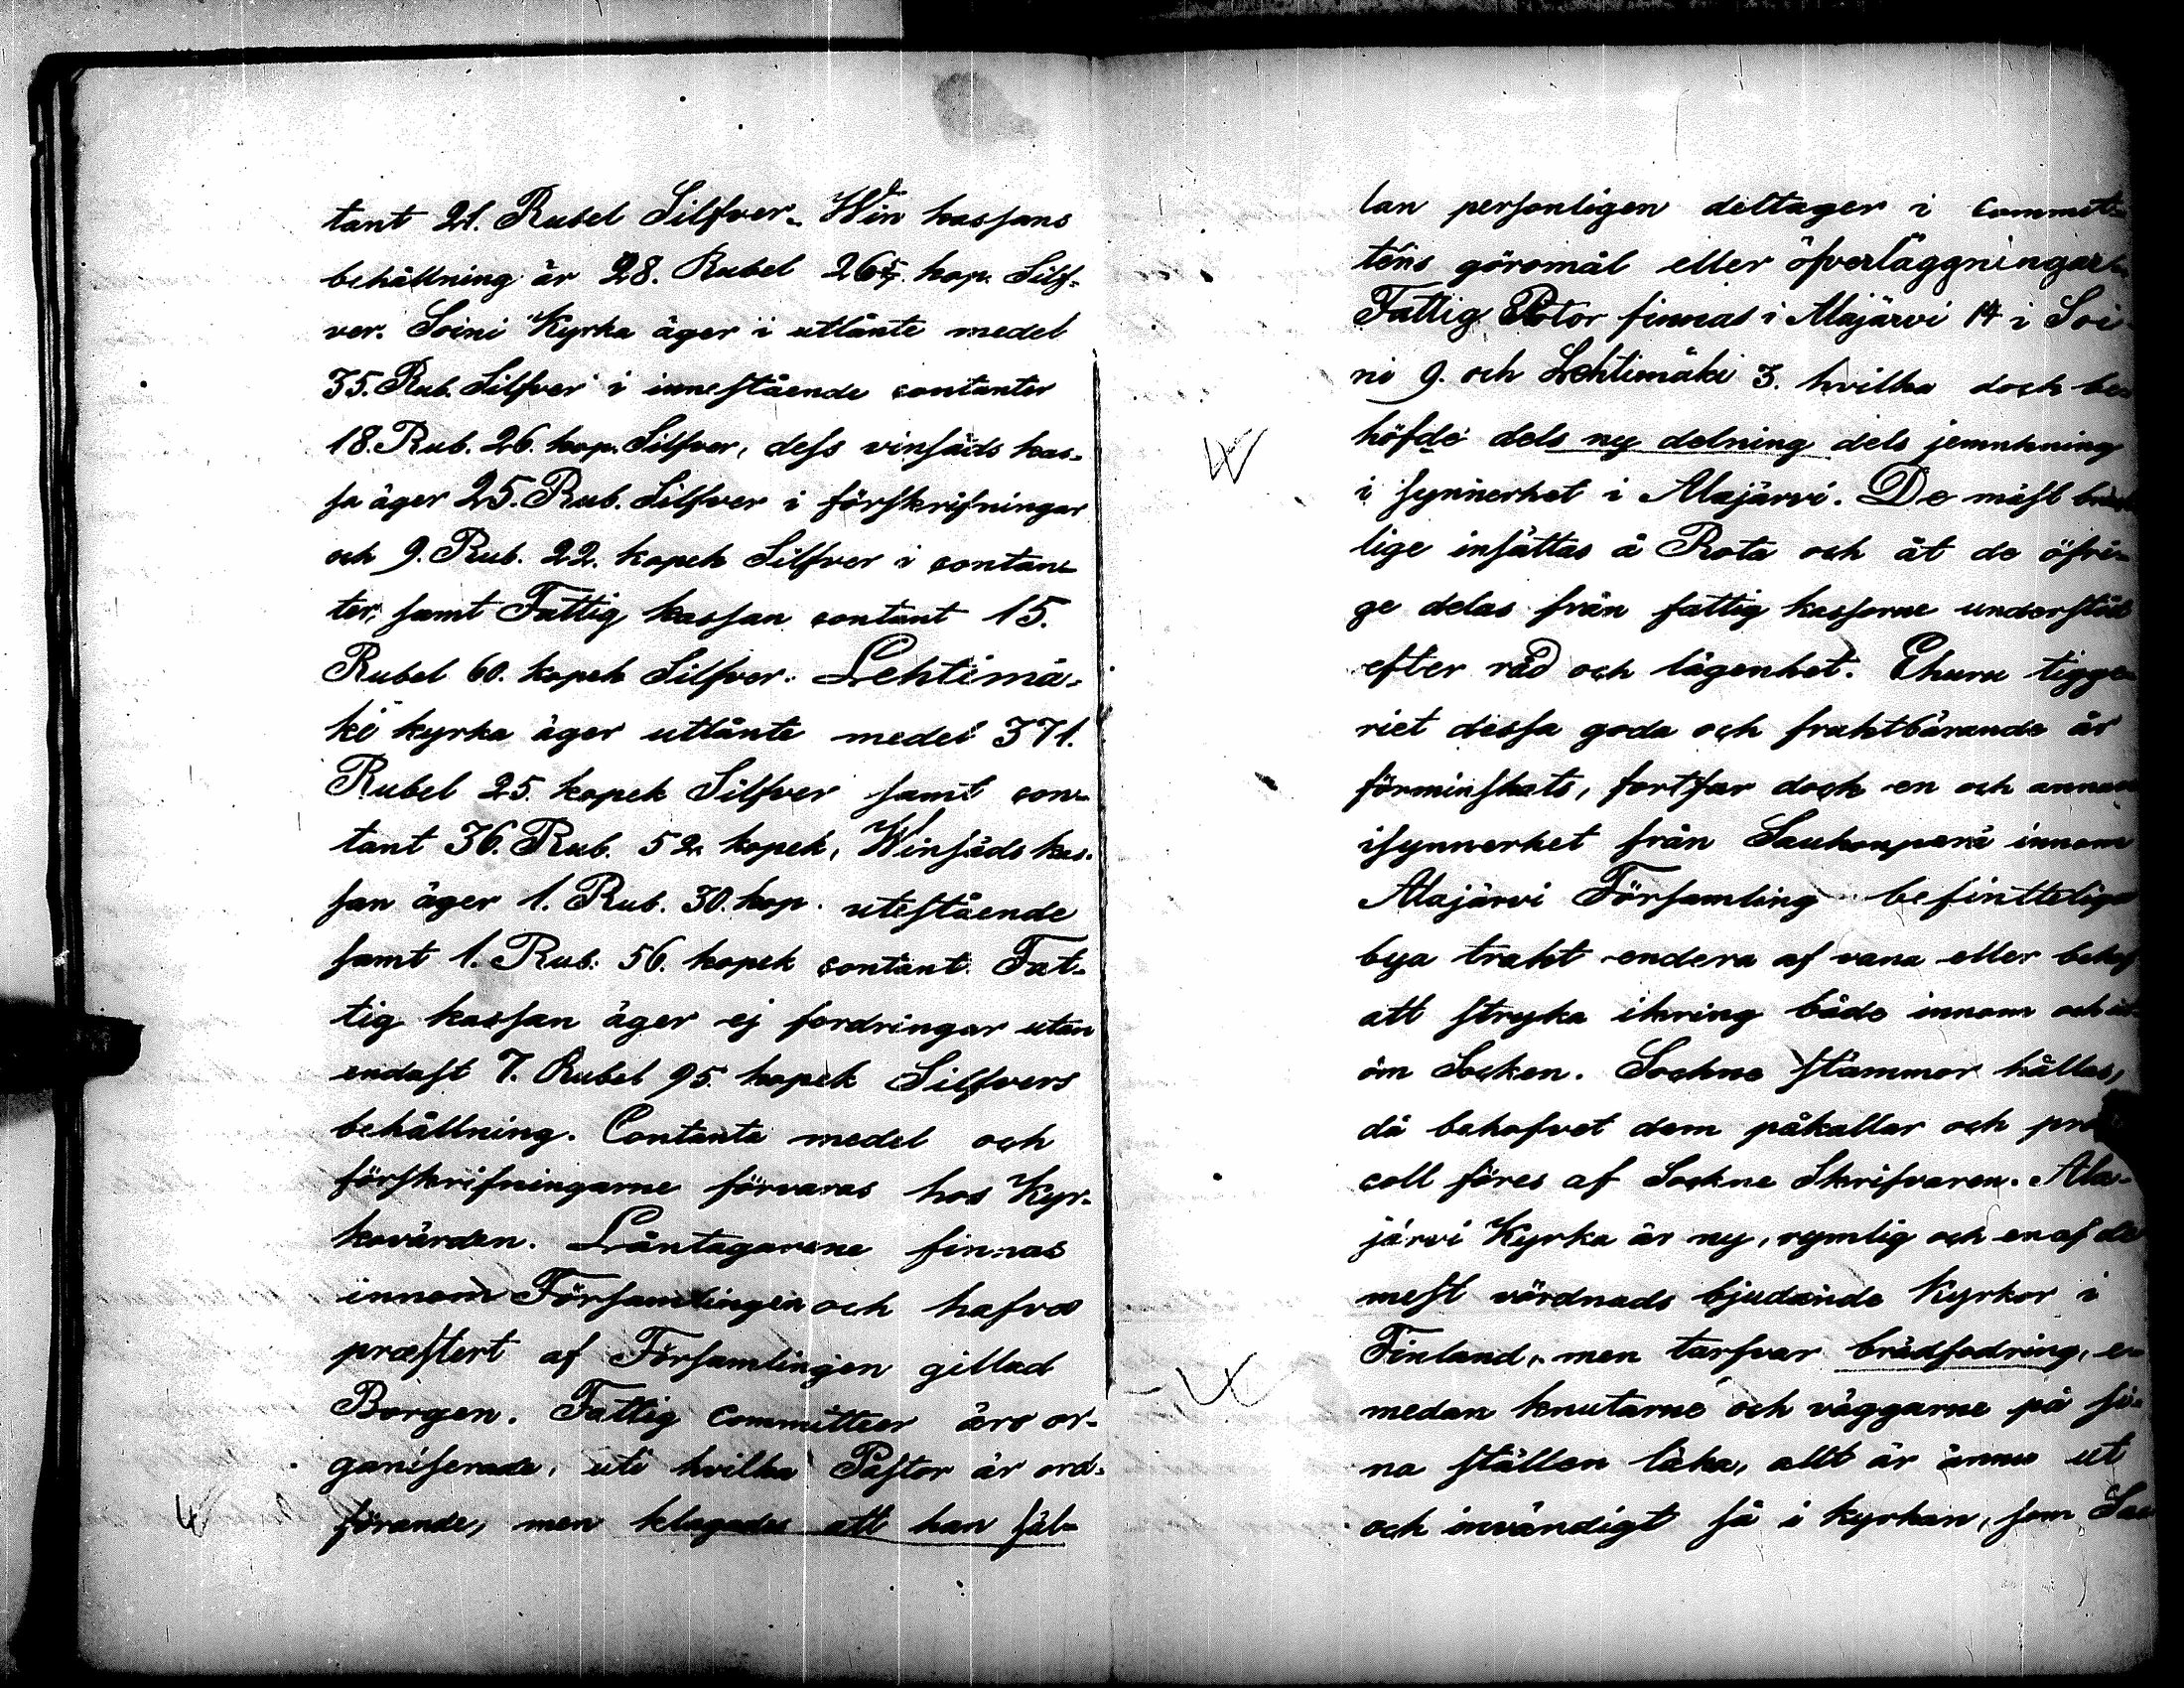 tant 21. Rubel Silfver. Win kassans
behållning är 28. Rubel 26 5/7. kop. Silf-
ver. Soini Kyrka äger i utlånte medel
35. Rub. Silfver i innestående contanter
18. Rub. 26. kop. Silfver, dess vinsäds kas-
sa äger 25. Rub. Silfver i förskrifningar
och 9. Rub. 22. kopek Silfver i contan-
ter, samt Fattig kassan contant 15.
Rubel 60. kopek Silfver. Lehtimä-
ki kyrka äger utlånte medel 371.
Rubel 25. kopek Silfver samt con-
tant 36. Rub. 52. kopek, Winsäds kas-
san äger 1. Rub. 30. kop. utestående
samt 1. Rub. 56. kopek contant. Fat-
tig kassan äger ej fordringar utan
endast 7. Rubel 95. kopek Silfvers
behållning. Contanta medel och
förskrifningarne förvaras hos Kyr-
kovärden. Låntagarene finnas
innom Församlingen och hafva
præstert af Församlingen gillad
Borgen. Fattig Committeer äro or-
ganiserade, uti hvilka Pastor är ord-
förande, men klagades att han säl-
lan personligen deltager i commit-
téns göromål eller öfverläggningar.
Fattig Rotor finnas i Alajärvi 14 i Soi-
ni 9. och Lehtimäki 3. hvilka doch be-
höfde dels ny delning dels jemnkning
i synnerhet i Alajärvi. De mäst
lige insättas å Rota och åt de öfri-
ge delas från fattig kassorne understöd
efter råd och lägenhet. Ehuru tigge-
riet dessa goda och fruktbärande år
förminskats, fortfar doch en och annan
isynnerhet från Saukonperä innom
Alajärvi Församling befintteliga
bya trakt endera af vana eller behof
att stryka ikring både innom och ut-
om Socken. Sockne stämmor hållas,
då behofvet dem påkallar och pro
coll föres af Sockne Skrifvaren. Ala-
järvi Kyrka är ny, rymlig och en af de
mest vördnads bjudande Kyrkor i
Finland, men tarfvar brädfodring, e-
medan knutarne och väggarne på si-
na ställen läka, allt är ännu ut
och invändigt så i kyrkan, som Sac